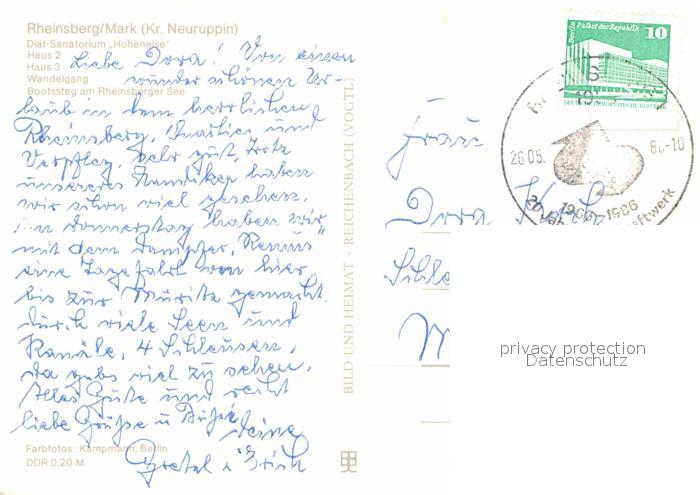 Rheinsberg/Mark (Kr. Neuruppin)
Diät-Sanatorium „Hohenelse"
Haus 2
Haus 3
Wandelgang
Bootssteg am Rheinsberger See
Liebe Dora! Von einem
wunderschönen Ur-
laub in dem herrlichen
Rheinsberg, Quartier und
Verpfleg. sehr gut, trotz
unseres Handikep haben
wir schon viel gesehen.
An Donnerstag haben wir
mit dem Dampfer „Remus"
eine Tagefahrt von hier
bis zur Müritz gemacht.
durch viele Seen und
Kanäle, 4 Schleusen,
da gabs viel zu sehen.
Alles Gute und recht
liebe Grüße u
Deine
Gretel u Erich
Farbfotos: Kampmann, Berlin
DDR 0,20 M
BILD UND HEIMAT · REICHENBACH (VOGTL)
Berlin Palast der Republik
10
DEUTSCHE DEMOKRATISCHE REPUBLIK
26.05. 86-10
1966-1986
20
Frau
Dora
privacy protection
Datenschutz